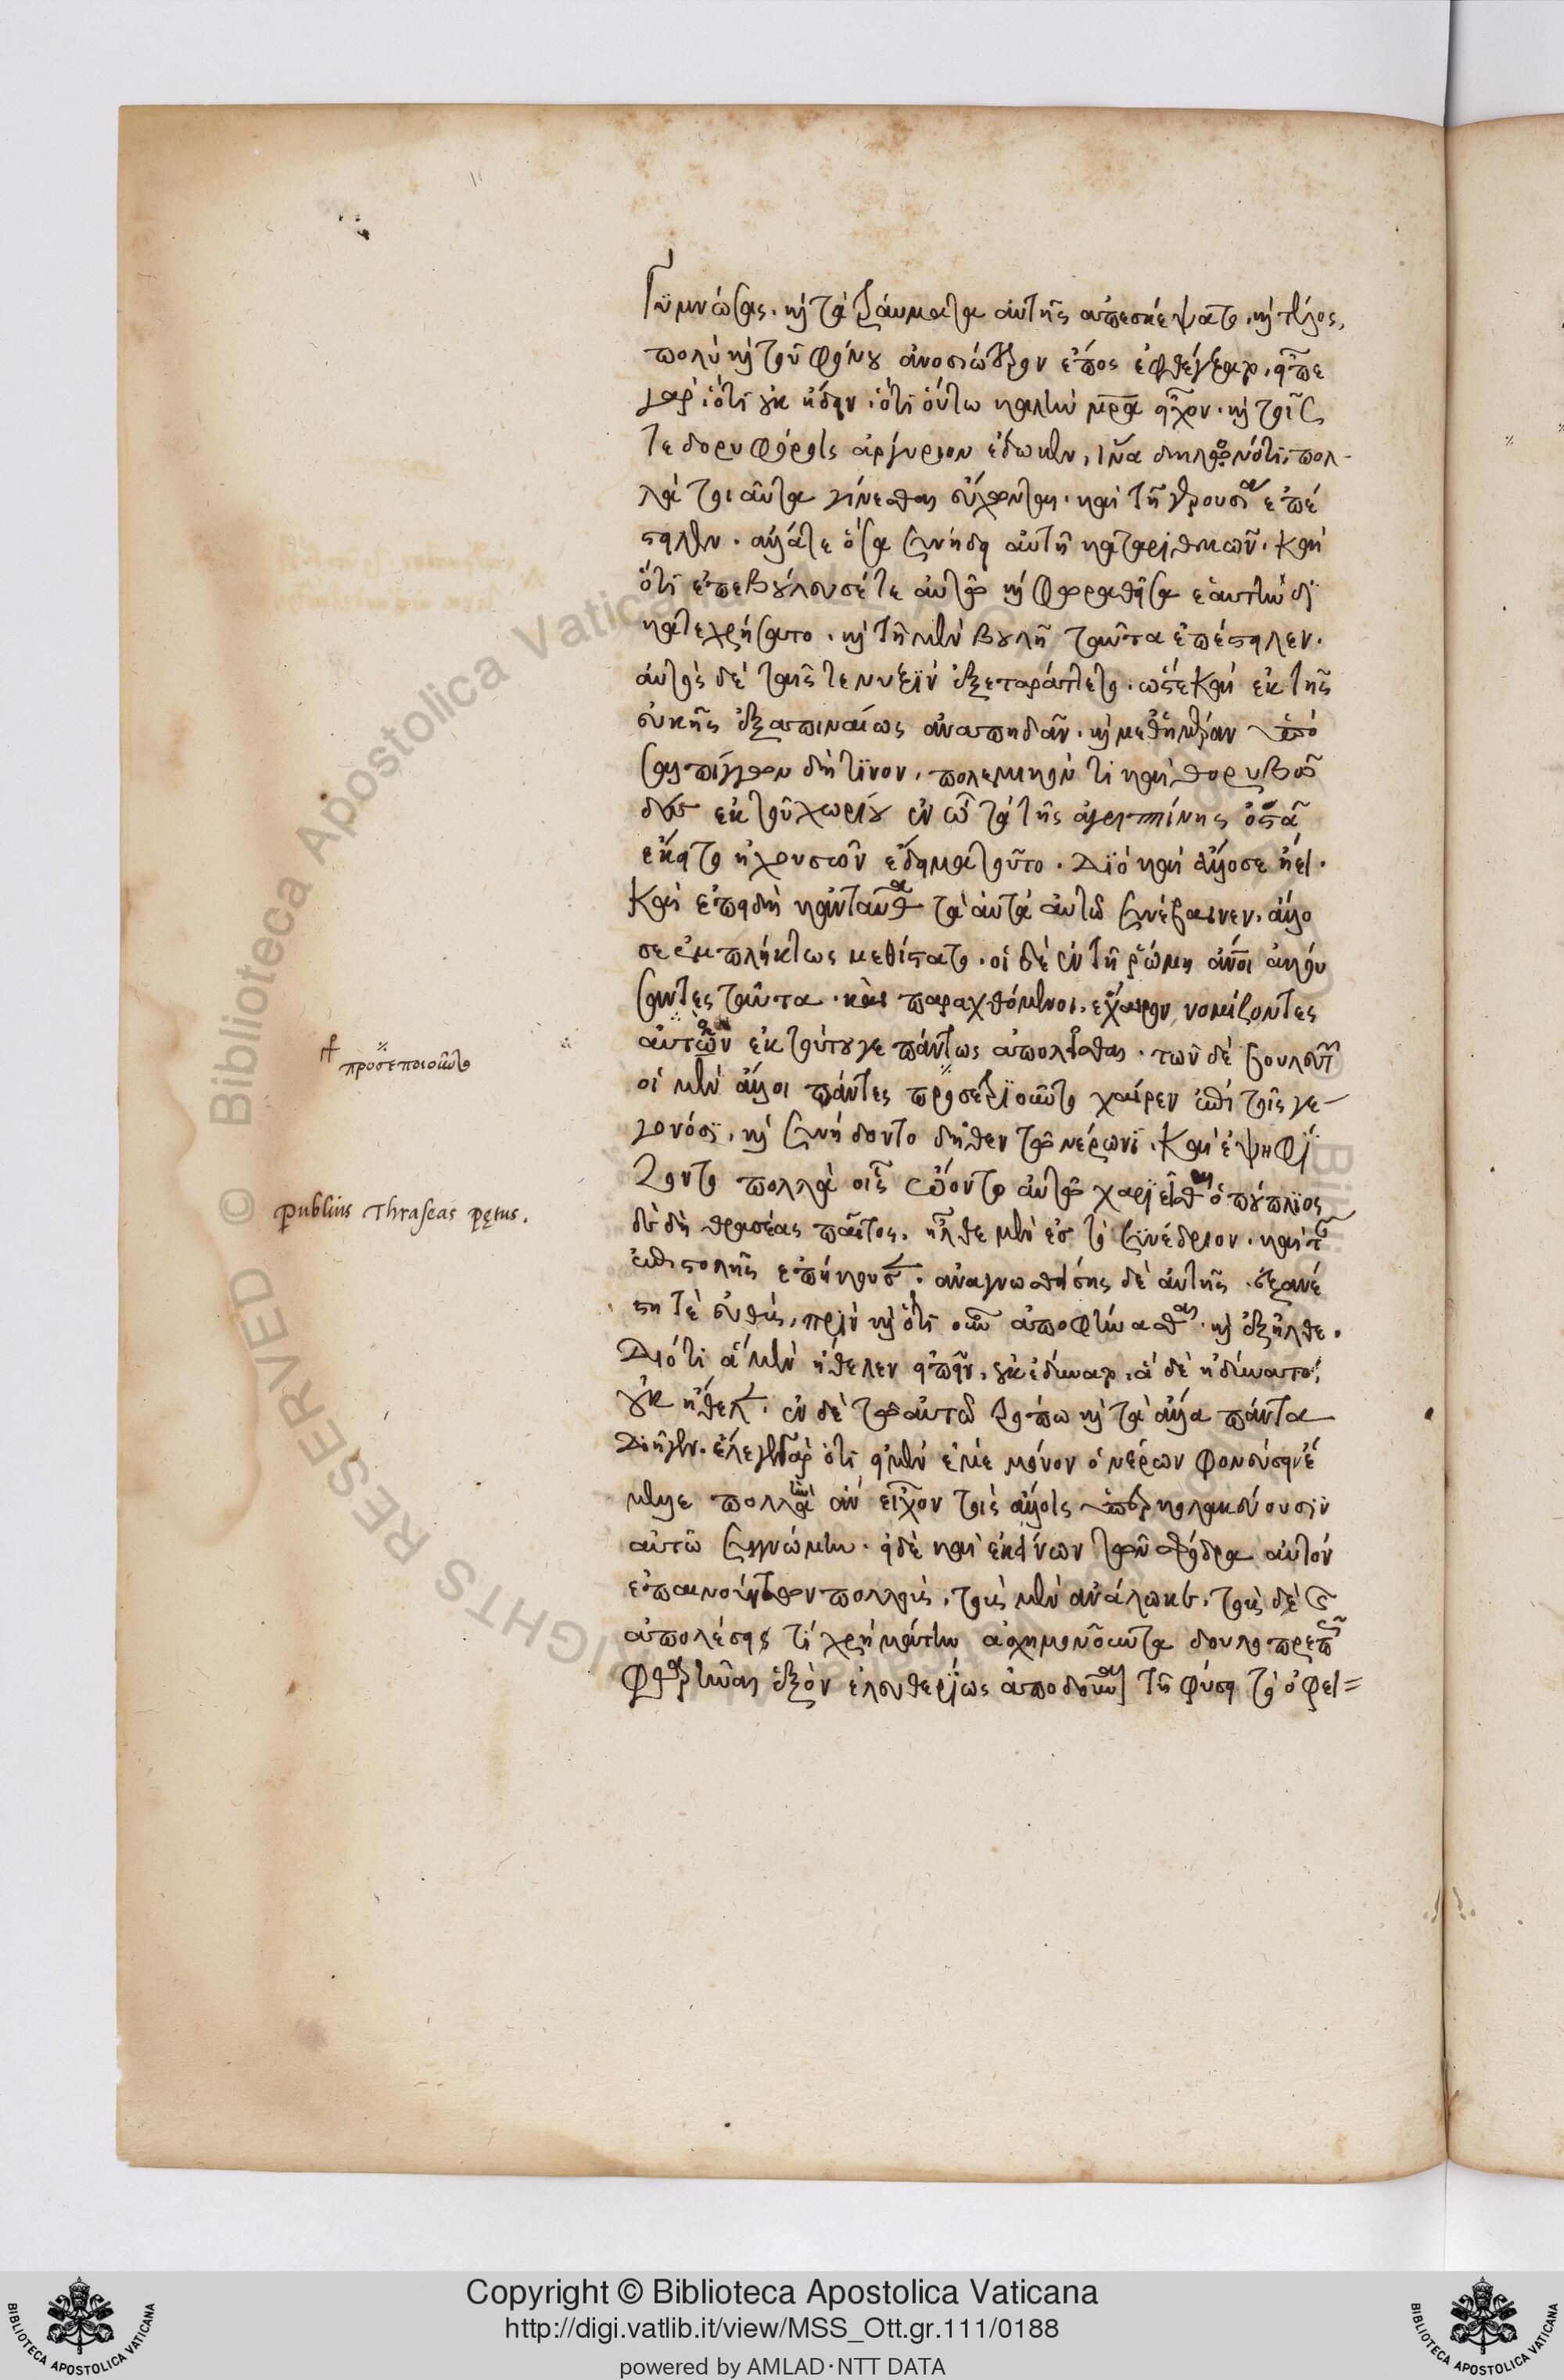 γυμνώσας. καὶ τὰ τραύματα αὐτῆς ἀπεσκέψατο. καὶ τέλος,
πολὺ καὶ τοῦ φόνου ἀνοσιώτερον ἔπος ἐφθέγξατο. εἶπε
γὰρ ὅτι οὐκ ᾔδειν ὅτι οὕτω καλὴν μρ̅α εἶχον. καὶ τοῖς
τε δορυφόροις ἀργύριον ἔδωκεν, ἵνα δηλονότι πολ-
λὰ τοιαῦτα γίνεσθαι εὔχωνται. καὶ τῇ γερουσίᾳ ἐπέ
στειλεν. ἄλλα τε ὅσα συνῄδει αὐτῇ καταριθμῶν. καὶ
ὅτι ἐπεβούλευσέ τε αὐτῷ καὶ φωραθεῖσα ἑαυτὴν δι
κατεχρήσατο. καὶ τῇ μὲν βουλῇ ταῦτα ἐπέστειλεν.
αὐτὸς δὲ ταῖς τε νυξὶν ἐξεταράττετο. ὥστε καὶ ἐκ τῆς
εὐνῆς ἐξαπιναίως ἀναπηδᾶν. καὶ μεθ' ἡμέραν ὑπὸ
σαλπίγγων δή τινων, πολεμικόν τι καὶ θορυβῶ
δες ἐκ τοῦ χωρίου ἐν ᾧ τὰ τῆς ἀγριππίνης ὀστᾶ
ἔκειτο ἠχουσῶν ἐδειματοῦτο. Διὸ καὶ ἄλλοσε ᾔει.
καὶ ἐπειδὴ κἀνταῦθα τὰ αὐτὰ αὐτῷ συνέβαινεν. ἄλλο
σε ἐμπλήκτως μεθίστατο. οἱ δὲ ἐν τῇ ῥώμῃ ἄνοι ἀκού
σαντες ταῦτα. καὶ παραχθόμενοι. ἔχαιρον νομίζοντες
αὐτὸν ἐκ τούτου γε πάντως ἀπολεῖσθαι. τῶν δὲ βουλευτῶν
οἱ μὲν ἄλλοι πάντες χαίρειν ἐπὶ τοῖς γε-
γονόσι. καὶ συνήδοντο δῆθεν τῷ νέρωνι. καὶ ἐψηφί
ζοντο πολλὰ οἷς ᾤοντο αὐτῷ χαριεῖσθαι ὁ πούπλιος
δὲ δὴ θρασέας παῖτος. ἦλθε μὲν ἐς τὸ συνέδριον. καὶ τῆς
ἐπιστολῆς ἐπήκουσε. ἀναγνωσθείσης δὲ αὐτῆς. ἐξανέ
στη τὲ εὐθὺς, πρὶν καὶ ὁτι οὖν ἀποφήνασθαι. καὶ ἐξῆλθε.
Διότι ἃ μὲν ἤθελεν εἰπεῖν, οὐκ ἐδύνατο, ἃ δὲ ἠδύνατο,
οὐκ ἤθελεν. ἐν δὲ τῷ αὐτῷ τρόπῳ καὶ τὰ ἄλλα πάντα
διῆγεν. ἔλεγε γὰρ ὅτι εἰ μὲν ἐμὲ μόνον ὁ νέρων φονεύσειν ἔ
μελλε πολλὴν ἂν εἶχον τοῖς ἄλλοις ὑπερκολακεύουσιν
αὐτῷ συγγνώμην. εἰ δὲ καὶ ἐκείνων τῶν σφόδρα αὐτὸν
ἐπαινούντων πολλοὺς, τοὺς μὲν ἀνάλωκε, τοὺς δὲ
ἀπολέσει τί χρὴ μάτην ἀσχημονοῦντα δουλοπρεπῶς
φθαρῆναι ἐξὸν ἐλευθερίως ἀποδοῦναι τῇ φύσει τὸ ὀφει=
προσεποιοῦντο
publius Thraseas pętus.
© Biblioteca Apostolica Vaticana
RIGHTS RESERVED
Copyright © Biblioteca Apostolica Vaticana
http://digi.vatlib.it/view/MSS_Ott.gr.111/0188
powered by AMLAD·NTT DATA
BIBLIOTECA APOSTOLICA VATICANA
BIBLIOTECA APOSTOLICA VATICANA